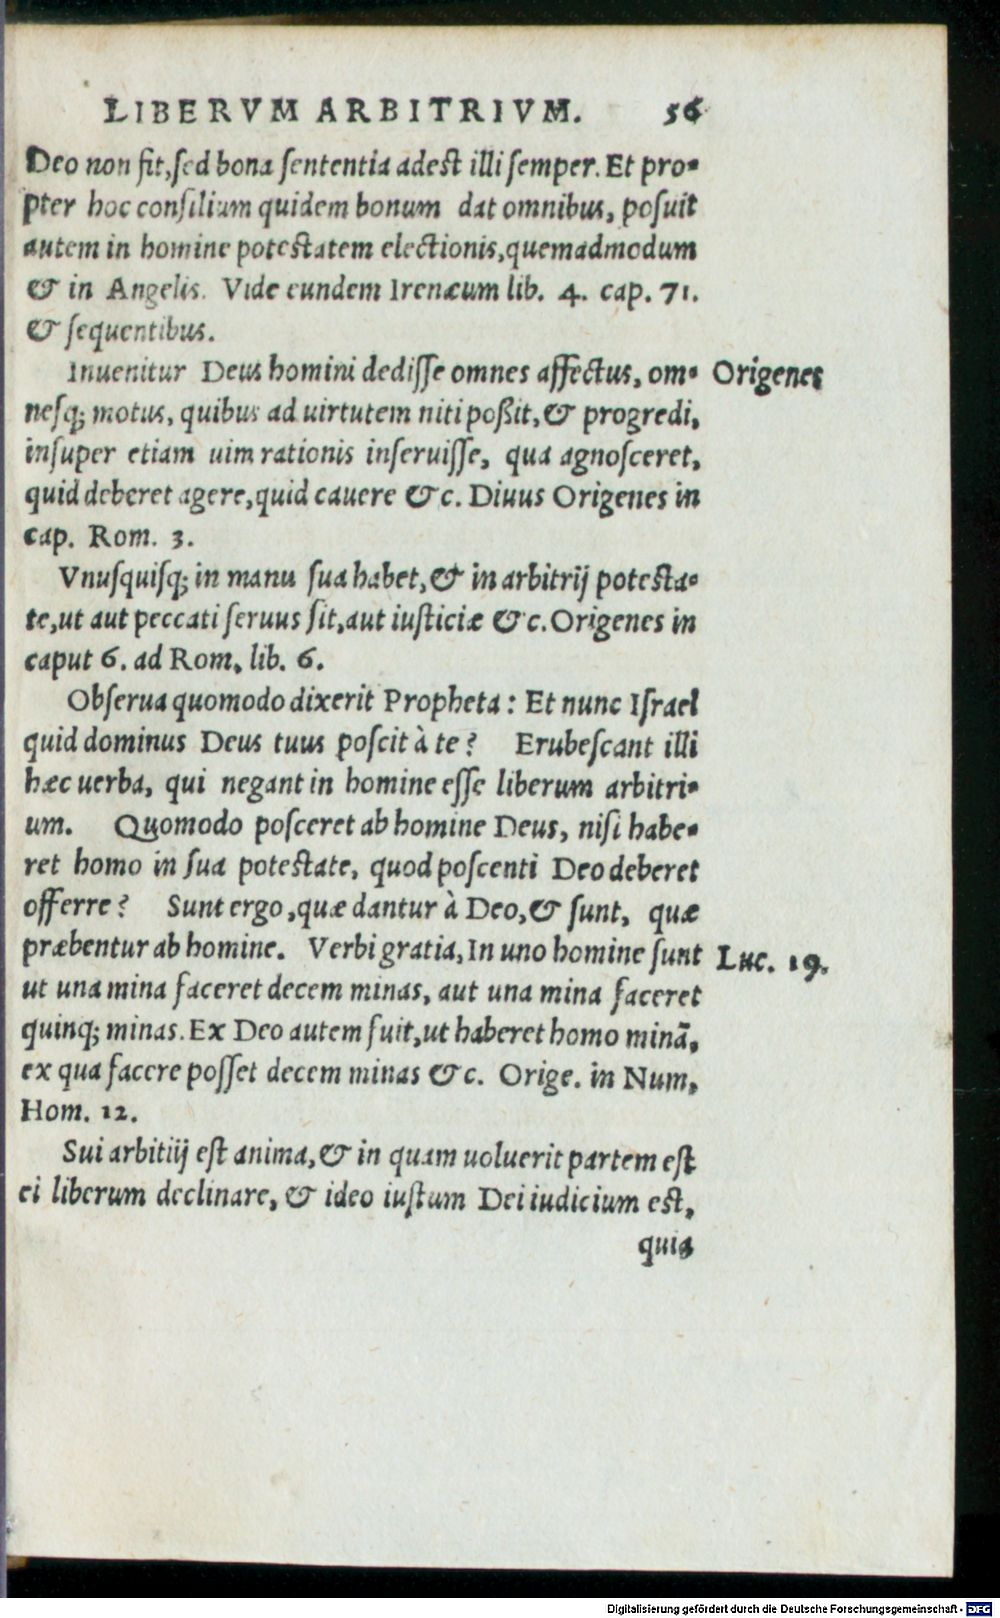 LIBERVM ARBITRIVM. 56
Deo non fit, sed bona sententia adest illi semper. Et pro-
pter hoc consilium quidem bonum dat omnibus, posuit
autem in homine potestatem electionis, quemadmodum
& in Angelis. Vide eundem Irenæum lib. 4. cap. 71.
& sequentibus.
Inuenitur Deus homini dedisse omnes affectus, om-
Origenes
nesq; motus, quibus ad uirtutem niti poßit, & progredi,
insuper etiam uim rationis inseruisse, qua agnosceret,
quid deberet agere, quid cauere &c. Diuus Origenes in
cap. Rom. 3.
Vnusquisq; in manu sua habet, & in arbitrij potesta-
te, ut aut peccati seruus sit, aut iusticiæ &c. Origenes in
caput 6. ad Rom. lib. 6.
Obserua quomodo dixerit Propheta: Et nunc Israel
quid dominus Deus tuus poscit à te? Erubescant illi
hæc uerba, qui negant in homine esse liberum arbitri-
um. Quomodo posceret ab homine Deus, nisi habe-
ret homo in sua potestate, quod poscenti Deo deberet
offerre? Sunt ergo, quæ dantur à Deo, & sunt, quæ
præbentur ab homine. Verbi gratia, In uno homine sunt
Luc. 19.
ut una mina faceret decem minas, aut una mina faceret
quinq; minas. Ex Deo autem fuit, ut haberet homo minā,
ex qua facere posset decem minas &c. Orige. in Num.
Hom. 12.
Sui arbitiij est anima, & in quam uoluerit partem est
ei liberum declinare, & ideo iustum Dei iudicium est,
quia
Digitalisierung gefördert durch die Deutsche Forschungsgemeinschaft - DFG